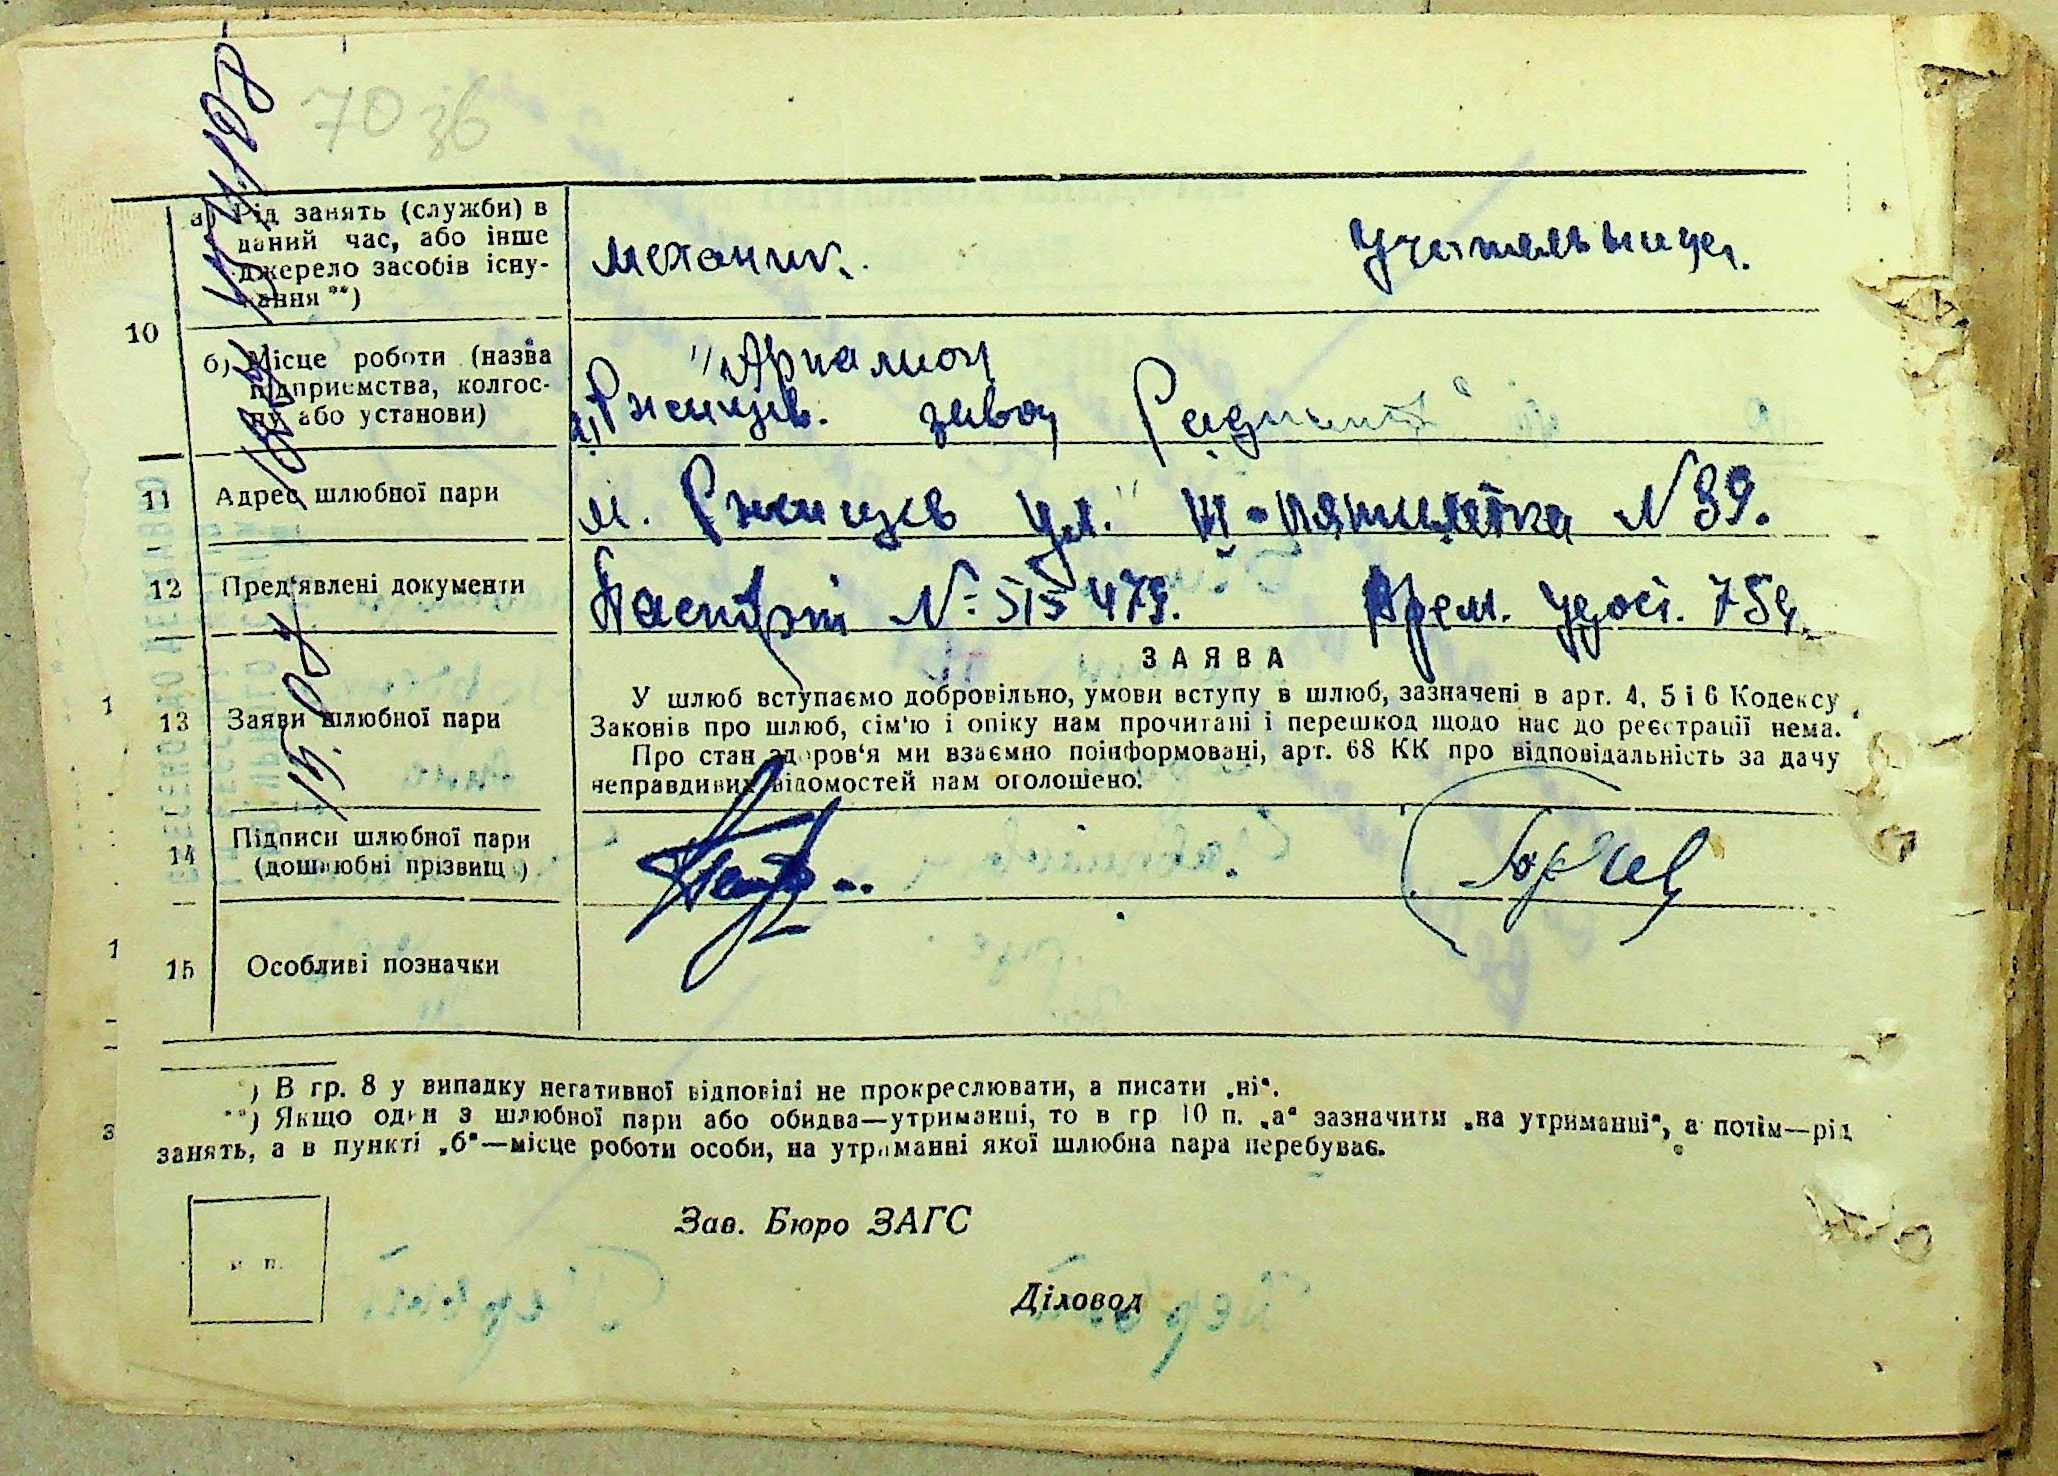 70 зв
10
а) Рід занять (служби) в
даний час, або інше
джерело засобів існу-
вання **)
механик.
учительница.
б) Місце роботи (назва
підприємства, колгос-
пу або установи)
Ржищів. завод
11
Адрес шлюбної пари
м. Ржищев ул. III-пятилетка № 39.
12
Пред‘явлені документи
Паспорт № 515479. Врем. удост. 754.
ЗАЯВА
13
Заяви шлюбної пари
У шлюб вступаємо добровільно, умови вступу в шлюб, зазначені в арт. 4, 5 і 6 Кодексу
Законів про шлюб, сім‘ю і опіку нам прочитані і перешкод щодо нас до реєстрації нема.
Про стан здоров‘я ми взаємно поінформовані, арт. 68 КК про відповідальність за дачу
неправдивих відомостей нам оголошено.
14
Підписи шлюбної пари
(дошлюбні прізвищ )
15
Особливі позначки
*) В гр. 8 у випадку негативної відповіді не прокреслювати, а писати „ні“.
**) Якщо один з шлюбної пари або обидва—утриманці, то в гр 10 п. „а“ зазначити „на утриманні“, а потім—рід
занять, а в пункті „б“—місце роботи особи, на утриманні якої шлюбна пара перебуває.
Зав. Бюро ЗАГС
м п.
Діловод